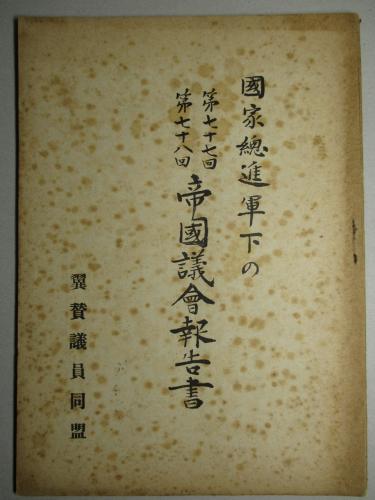 國家總進軍下の
第七十七回
第七十八回
帝國議會報告書
翼贊議員同盟